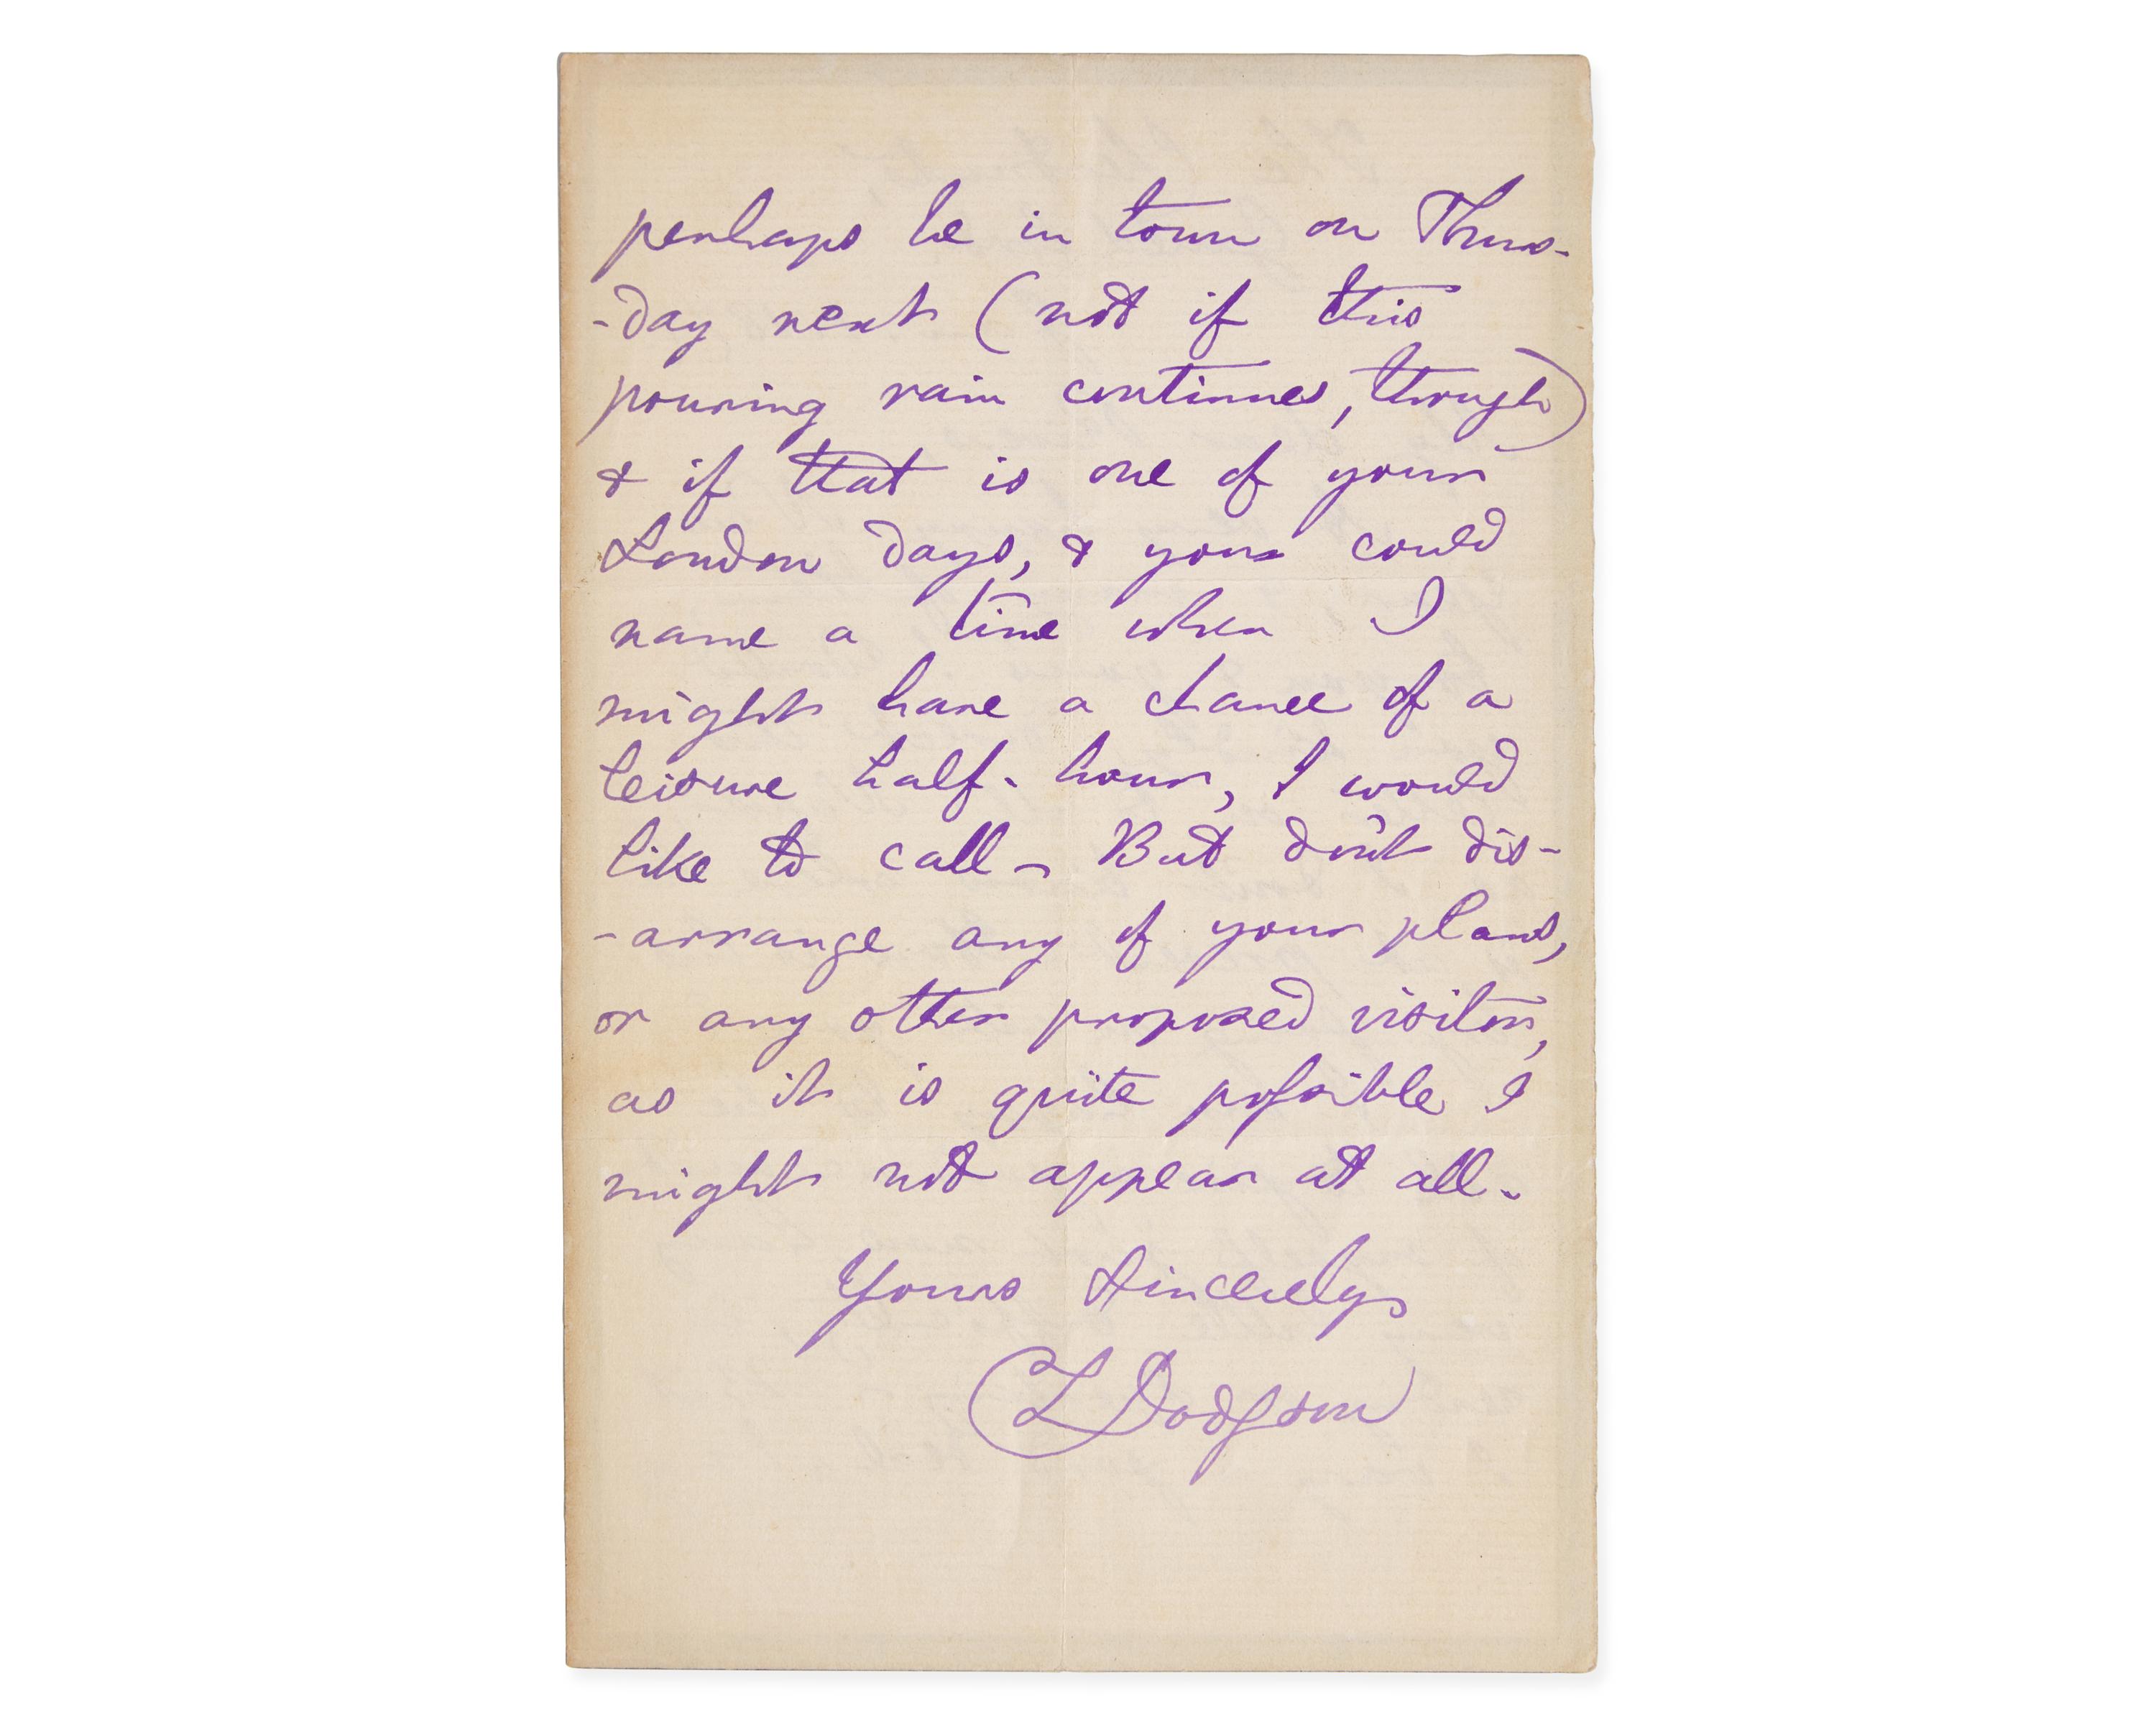 perhaps be in town on Thurs-
-day next (not if this
pouring rain continues, though)
& if that is one of your
London days, & you could
name a time when I
might have a chance of a
leisure half-hour, I would
like to call - But don't dis-
-arrange any of your plans,
or any other proposed visitor,
as it is quite poſsible I
might not appear at all.
Yours Sincerely
CLDodgson